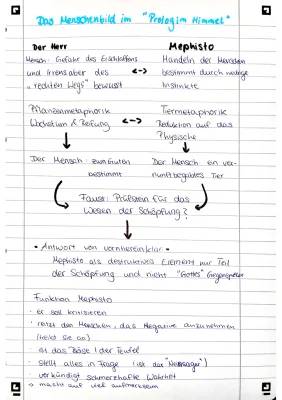 Das Menschenbild im "Prolog im Himmel"
Der Herr Mephisto
Mensch: Gefahr des Erschlaffens <-> Handeln der Menschen
und Irrens aber des bestimmt durch niedrige
"rechten Wegs" bewusst Instinkte
Pflanzenmetaphorik <-> Tiermetaphorik
Wachstum & Reifung Reduktion auf das
Physische
Der Mensch zum Guten Der Mensch ein ver-
bestimmt nunftbegabtes Tier
Faust: Prüfstein für das
Wesen der Schöpfung?
• Antwort von vornherein klar •
Mephisto als destruktives Element nur Teil
der Schöpfung und nicht "Gottes" Gegenspieler
Funktion Mephisto
• er soll kritisieren
• reizt den Menschen, das Negative anzunehmen
(heizt sie an)
• ist das Böse / der Teufel
• stellt alles in Frage (ist der "Neinsager")
• verkündigt schmerzhafte Wahrheit
-> macht auf viel aufmerksam